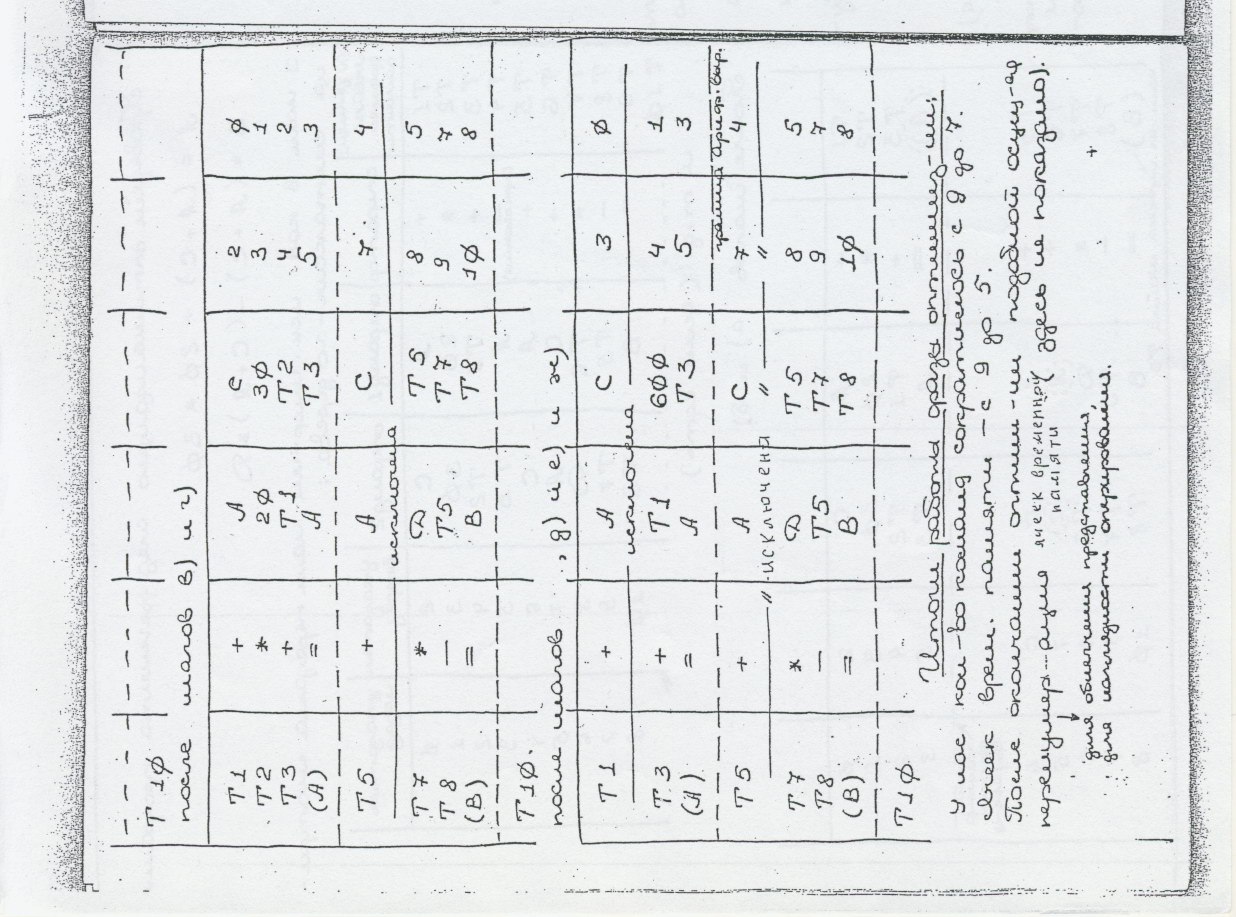 T1Ø
после шагов в) и г)
T1 + A C 2 Ø
T2 * 2Ø 3Ø 3 1
T3 + T1 T2 4 2
(A) = A T3 5 3
T5 + A C 7 4
исключена
T7 * D T5 8 5
T8 — T5 T7 9 7
(B) = B T8 1Ø 8
T1Ø
после шагов д) и е) и ж)
T1 + A C 3 Ø
исключена
T3 + T1 6ØØ 4 1
(A) = A T3 5 3
граница ариф. выр.
T5 + A C 7 4
" исключена " "
T7 * D T5 8 5
T8 — T5 T7 9 7
(B) = B T8 1Ø 8
T1Ø
Итоги работы фазы оптимиз-ии.
У нас кол-во команд сократилось с 9 до 7.
Ячеек врем. памяти – с 9 до 5.
После окончания оптим-ии подобной осущ-ся
перенумер-рация ячеек временной памяти (здесь не показано).
для облегчения представления
для наглядности оперирования.